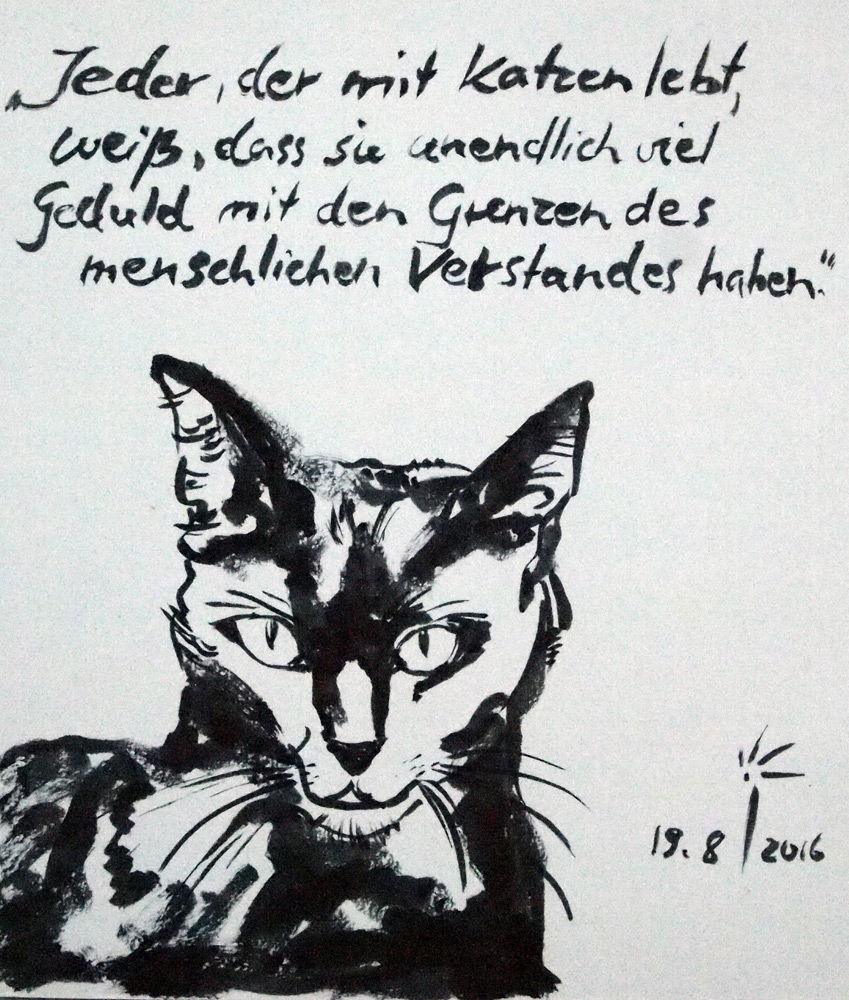 „Jeder, der mit Katzen lebt,
weiß, dass sie unendlich viel
Geduld mit den Grenzen des
menschlichen Verstandes haben."
19.8 2016